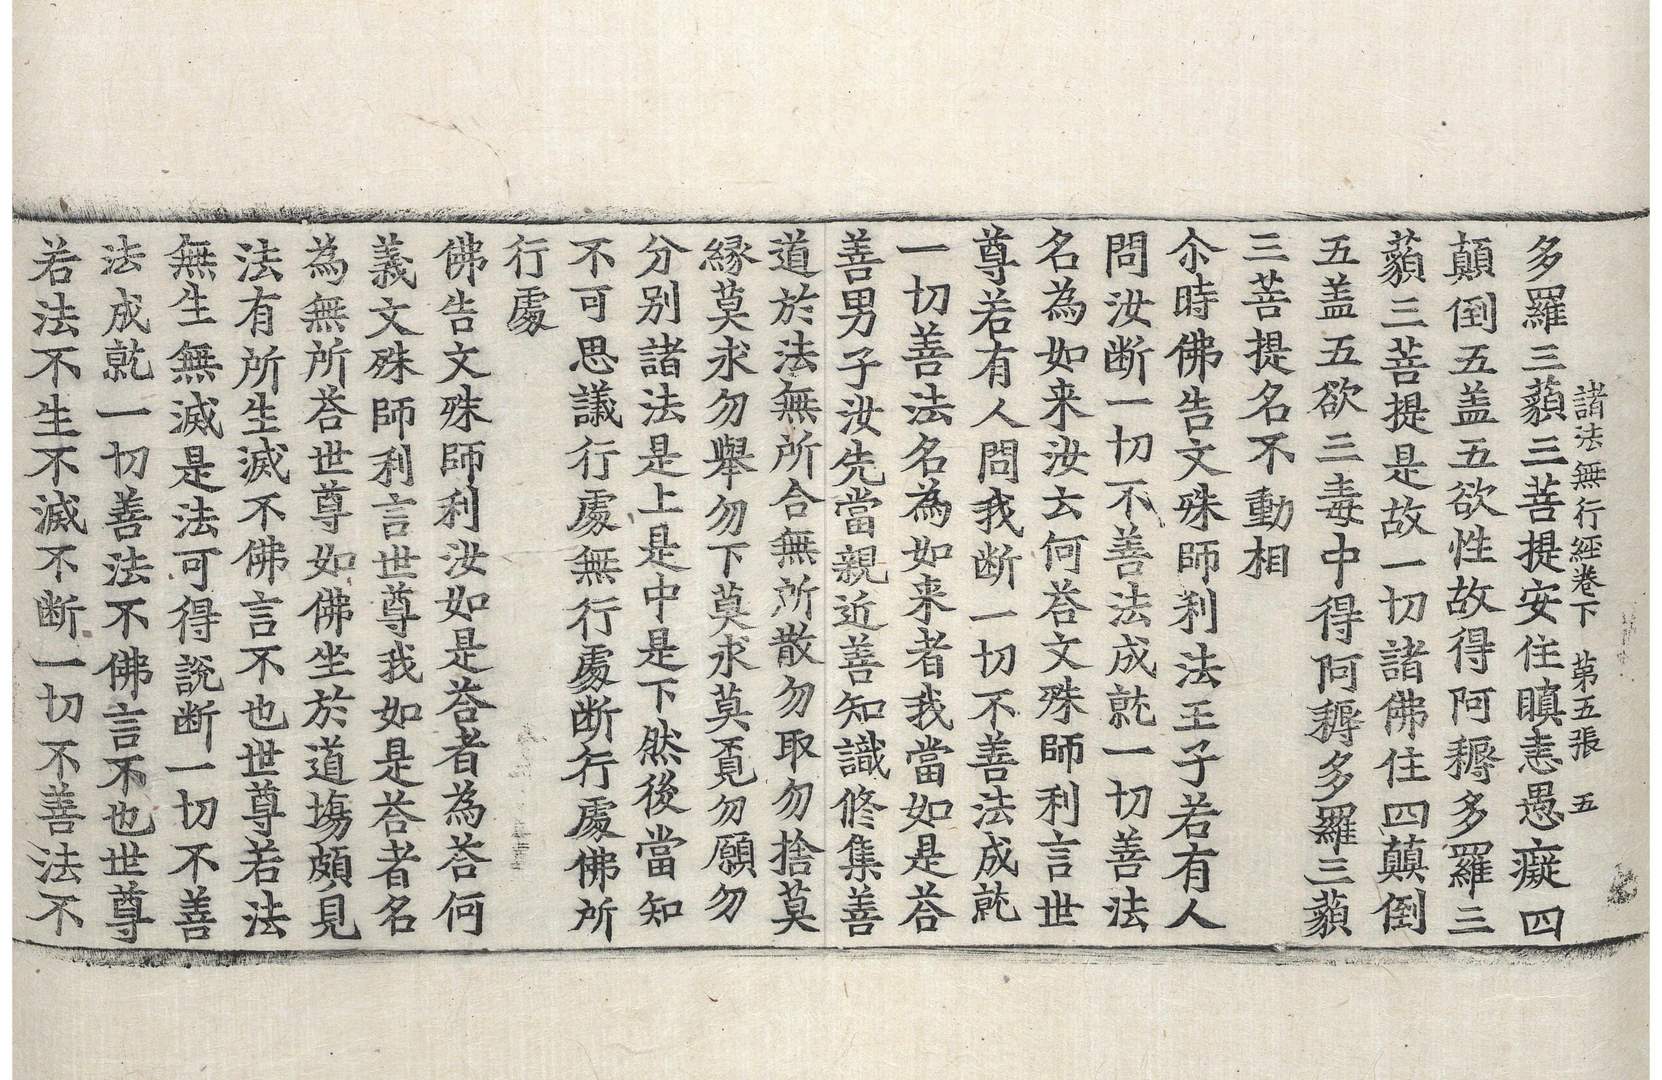 諸法無行經卷下　第五張　五
多羅三藐三菩提安住瞋恚愚癡四
顛倒五盖五欲性故得阿耨多羅三
藐三菩提是故一切諸佛住四顛倒
五盖五欲三毒中得阿耨多羅三藐
三菩提名不動相
尒時佛告文殊師利法王子若有人
問汝断一切不善法成就一切善法
名為如来汝去何荅文殊師利言世
尊若有人問我断一切不善法成就
一切善法名為如来者我當如是荅
善男子汝先當親近善知識修集善
道於法無所合無所散勿取勿捨莫
緣莫求勿舉勿下莫求莫覓勿願勿
分别諸法是上是中是下然後當知
不可思議行處無行處断行處佛所
行處
佛告文殊師利汝如是荅者為荅何
義文殊師利言世尊我如是荅者名
為無所荅世尊如佛坐於道塲頗見
法有所生滅不佛言不也世尊若法
無生無滅是法可得說断一切不善
法成就一切善法不佛言不也世尊
若法不生不滅不断一切不善法不